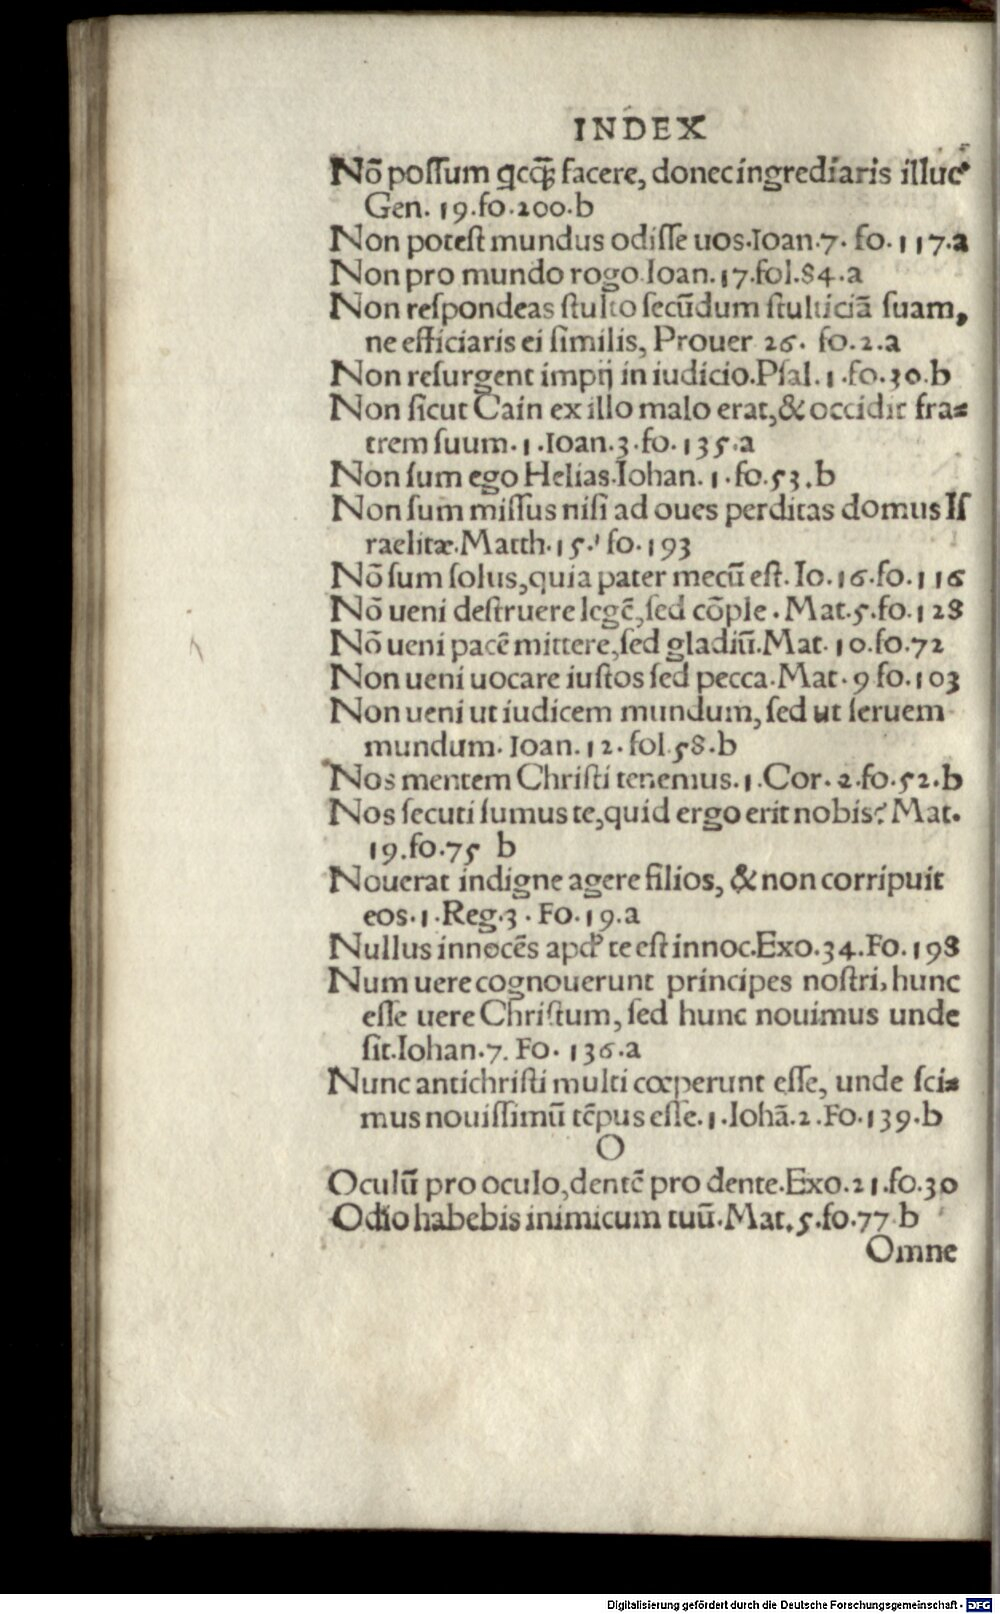 INDEX
Nō poſſum qcq̄ꝫ facere, donec ingrediaris illuc
Gen. 19.fo.200.b
Non poteſt mundus odiſſe uos.Ioan.7. fo.117.a
Non pro mundo rogo.Ioan.17.fol.84.a
Non reſpondeas ſtulto ſecūdum ſtulticiā ſuam,
ne efficiaris ei ſimilis, Prouer 26. fo.2.a
Non reſurgent impij in iudicio.Pſal.1.fo.30.b
Non ſicut Cain ex illo malo erat,& occidit fra⸗
trem ſuum.1.Ioan.3.fo.135.a
Non ſum ego Helias.Iohan.1.fo.53.b
Non ſum miſſus niſi ad oues perditas domus Iſ
raelitæ.Matth.15. fo.193
Nō ſum ſolus,quia pater mecū eſt. Io.16.fo.116
Nō ueni deſtruere legē,ſed cōple. Mat.5.fo.128
Nō ueni pacē mittere,ſed gladiū.Mat. 10.fo.72
Non ueni uocare iuſtos ſed pecca.Mat.9 fo.103
Non ueni ut iudicem mundum, ſed ut ſeruem
mundum. Ioan.12. fol.58.b
Nos mentem Chriſti tenemus.1.Cor.2.fo.52.b
Nos ſecuti ſumus te,quid ergo erit nobis? Mat.
19.fo.75 b
Nouerat indigne agere filios, & non corripuit
eos.1.Reg.3. Fo.19.a
Nullus innocēs apd' te eſt innoc.Exo.34.Fo.198
Num uere cognouerunt principes noſtri, hunc
eſſe uere Chriſtum, ſed hunc nouimus unde
ſit.Iohan.7. Fo. 136.a
Nunc antichriſti multi cœperunt eſſe, unde ſci⸗
mus nouiſſimū tēpus eſſe.1.Iohā.2.Fo.139.b
O
Oculū pro oculo,dentē pro dente.Exo.21.fo.30
Odio habebis inimicum tuū.Mat.5.fo.77 b
Omne
Digitalisierung gefördert durch die Deutsche Forschungsgemeinschaft - DFG